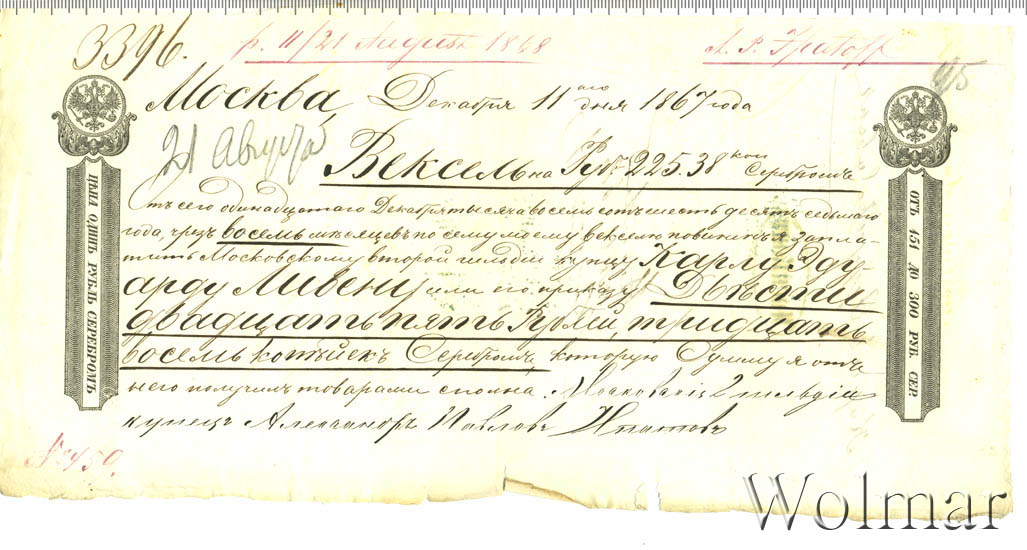 3396.
р. 11/21 Августа 1868
A. P. Ipatoff
95
Москва, Декабря 11 аго дня 1867 года
21 Августа
Вексель на Руб. 225.38 коп Серебромъ
отъ сего одинадцатаго Декабря тысяча восемь сотъ шесть десятъ седьмаго
года, чрезъ восемь мѣсяцевъ по сему моему векселю повиненъ я запла-
тить Московскому второй гильдіи купцу Карлу Эду-
арду Ливену или его приказу Двѣсти
двадцать пять Рублей, тридцать
восемь копѣйекъ Серебромъ, которую Сумму я отъ
него получилъ товарами сполна. Московскій 2 гильдіи
купецъ Александръ Павловъ Ипатовъ
№ 450.
ЦѢНА ОДИНЪ РУБЛЬ СЕРЕБРОМЪ
ОТЪ 151 ДО 300 РУБ. СЕР.
Wolmar